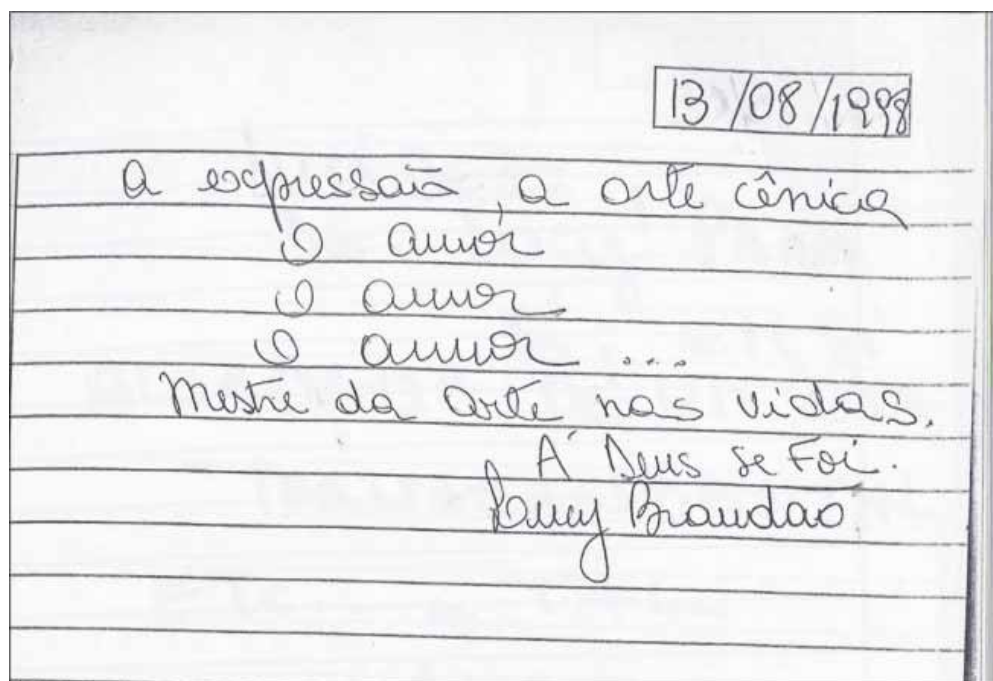 13/08/1998
A expressão, a arte cênica
O amor
O amor
O amor ...
Mestre da Arte nas vidas.
Á Deus se Foi.
Brandão